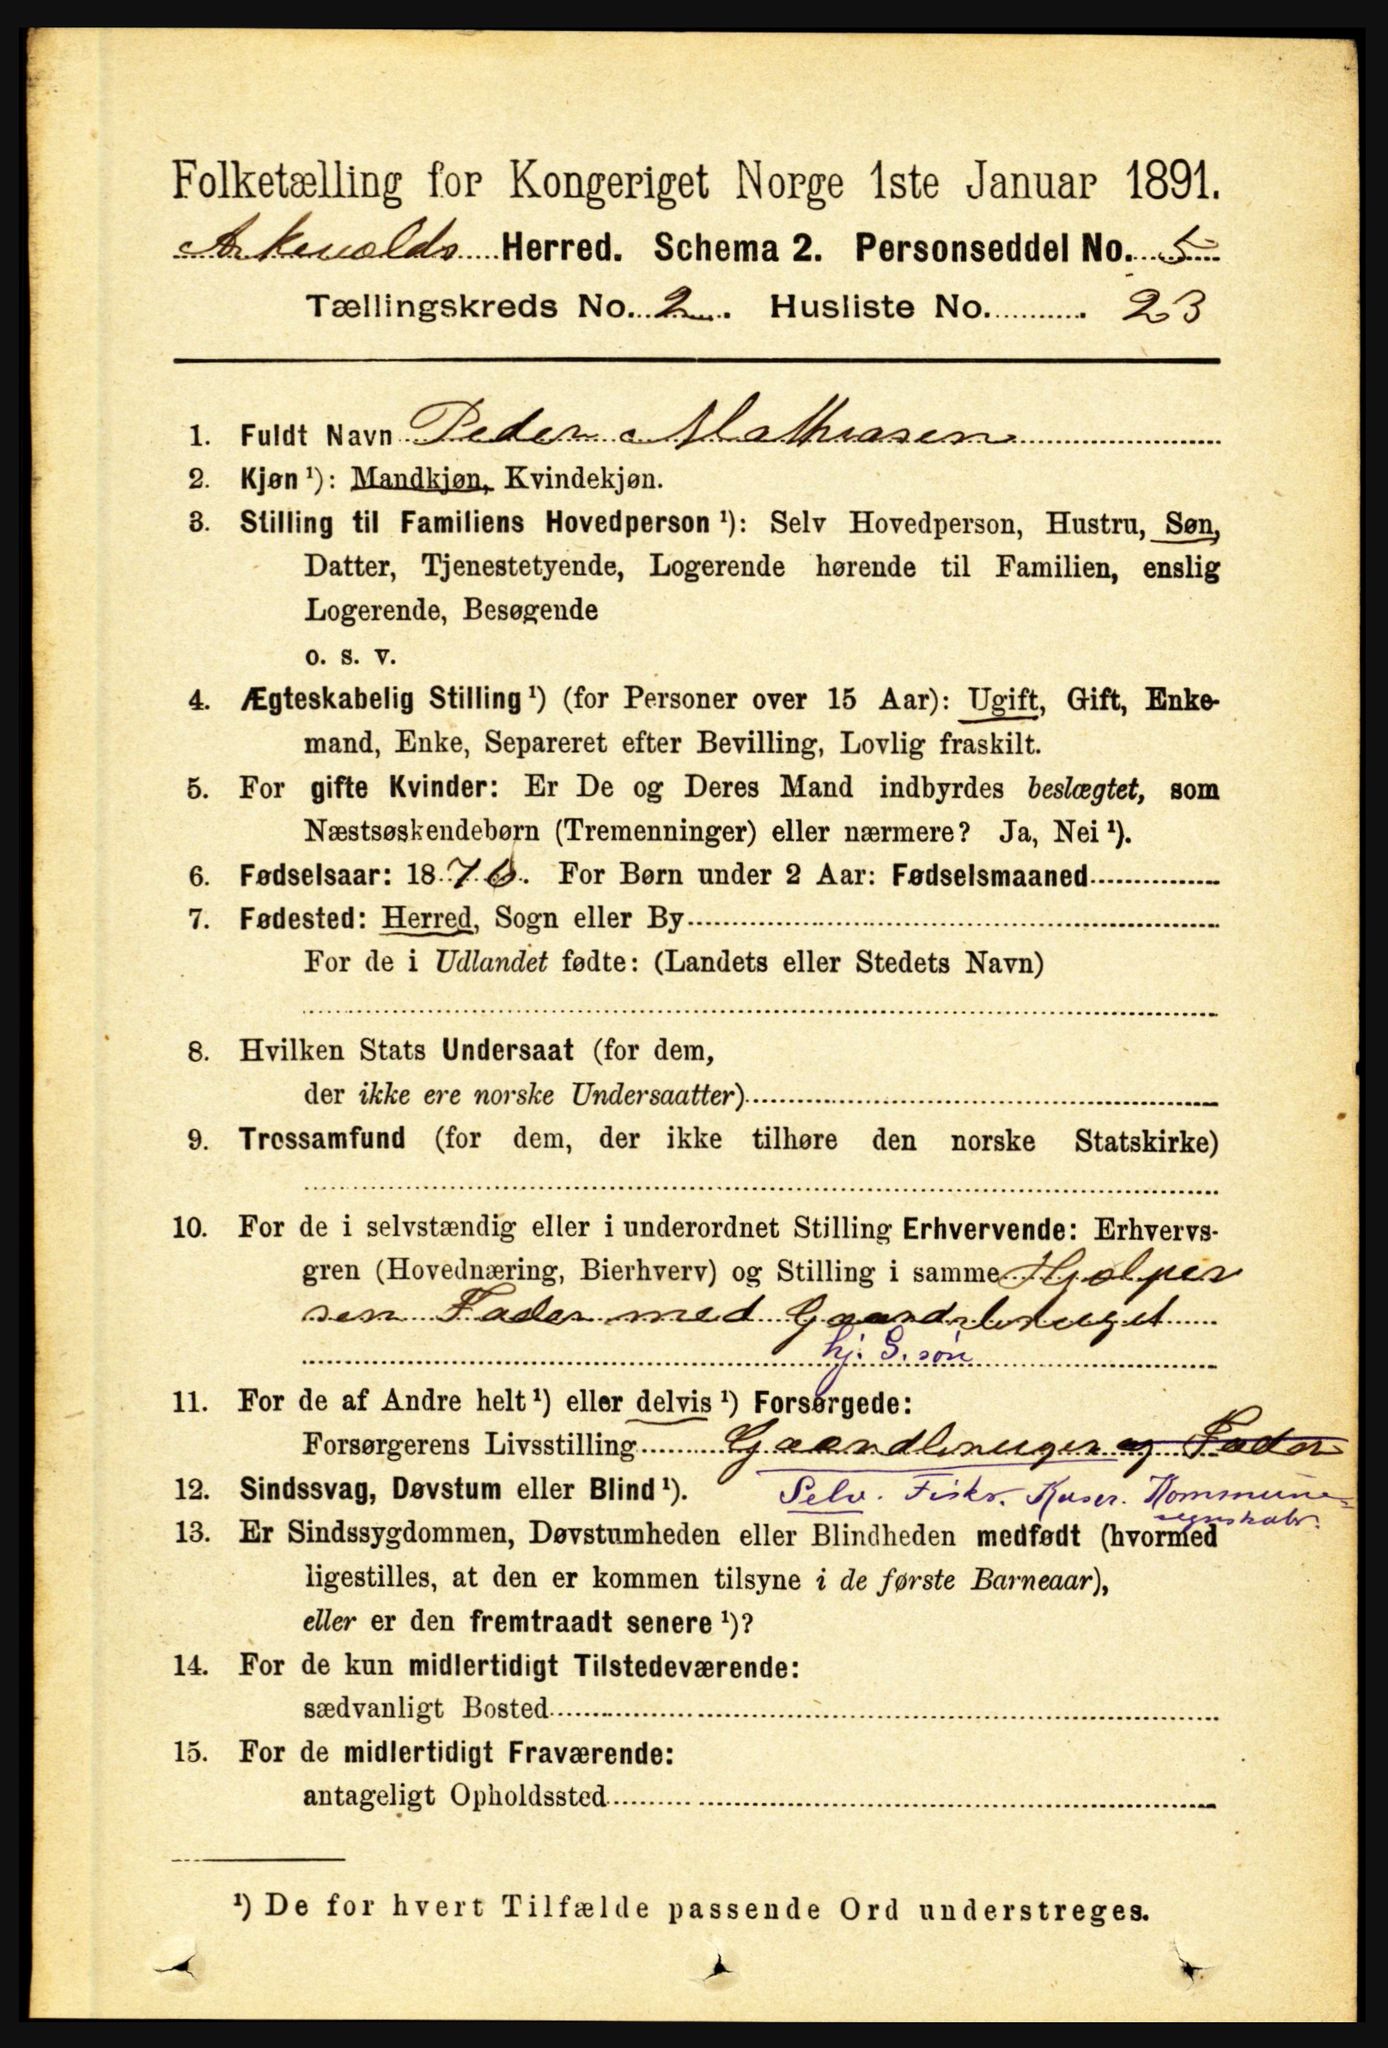 Folketælling for Kongeriget Norge 1ste Januar 1891.
Askevolds Herred. Schema 2. Personseddel No. 5
Tællingskreds No. 2. Husliste No. 23
1. Fuldt Navn Peder Mathiasen
2. Kjøn ¹): Mandkjøn, Kvindekjøn.
3. Stilling til Familiens Hovedperson ¹): Selv Hovedperson, Hustru, Søn,
Datter, Tjenestetyende, Logerende hørende til Familien, enslig
Logerende, Besøgende
o. s. v.
4. Ægteskabelig Stilling ¹) (for Personer over 15 Aar): Ugift, Gift, Enke-
mand, Enke, Separeret efter Bevilling, Lovlig fraskilt.
5. For gifte Kvinder: Er De og Deres Mand indbyrdes beslægtet, som
Næstsøskendebørn (Tremenninger) eller nærmere? Ja, Nei ¹).
6. Fødselsaar: 1876. For Børn under 2 Aar: Fødselsmaaned
7. Fødested: Herred, Sogn eller By
For de i Udlandet fødte: (Landets eller Stedets Navn)
8. Hvilken Stats Undersaat (for dem,
der ikke ere norske Undersaatter)
9. Trossamfund (for dem, der ikke tilhøre den norske Statskirke)
10. For de i selvstændig eller i underordnet Stilling Erhvervende: Erhvervs-
gren (Hovednæring, Bierhverv) og Stilling i samme Hjælper
sin Fader med Gaardsbruget
hj. G. søn
11. For de af Andre helt ¹) eller delvis ¹) Forsørgede:
Forsørgerens Livsstilling Gaardbruger og Fader
12. Sindssvag, Døvstum eller Blind ¹). Selv. Fisker. Kaser. Kommune-
regnskabr.
13. Er Sindssygdommen, Døvstumheden eller Blindheden medfødt (hvormed
ligestilles, at den er kommen tilsyne i de første Barneaar),
eller er den fremtraadt senere ¹)?
14. For de kun midlertidigt Tilstedeværende:
sædvanligt Bosted
15. For de midlertidigt Fraværende:
antageligt Opholdssted
¹) De for hvert Tilfælde passende Ord understreges.